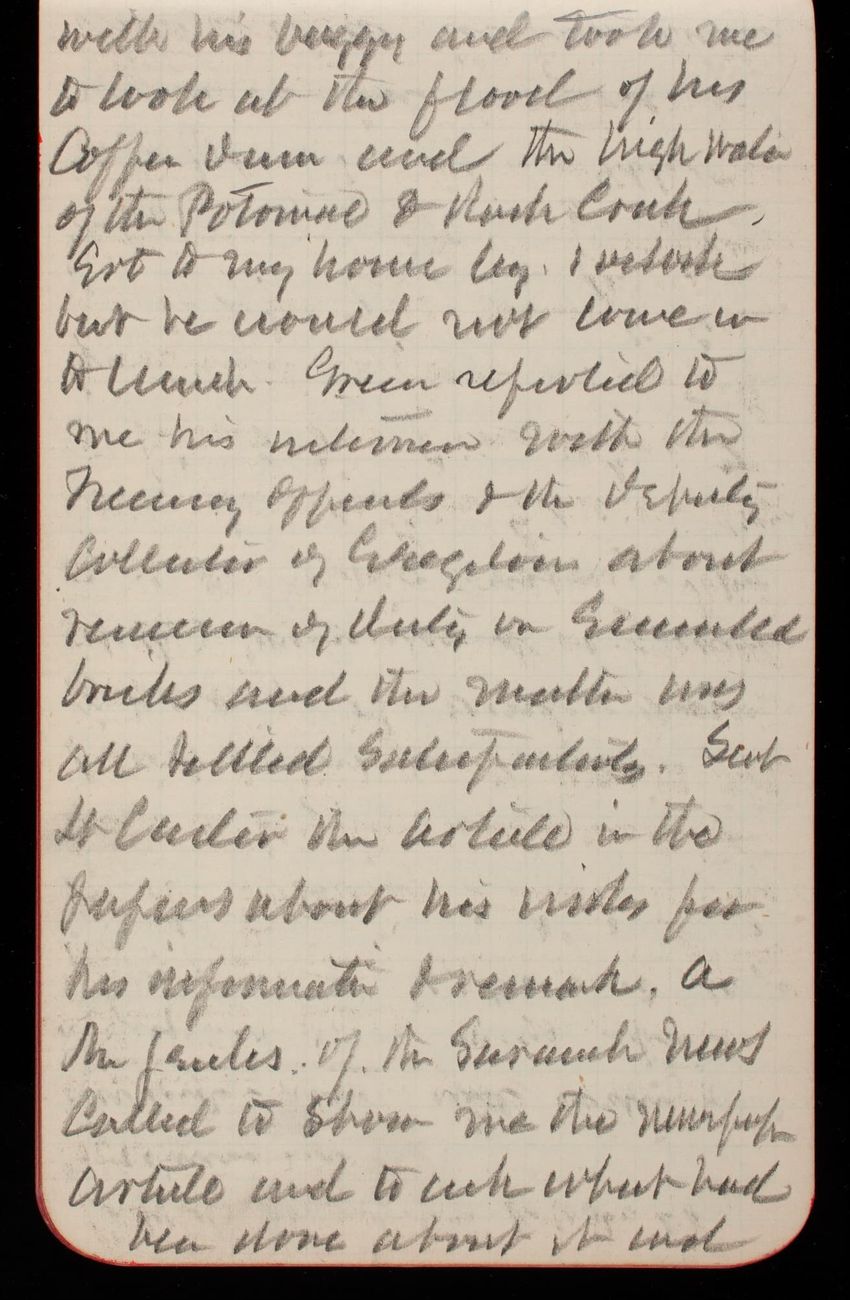 with his buggy and took me
to look at the flood of his
Coffer dam and the high water
of the Potomac & Rock Creek.
Got to my home by 1 oclock
but he would not come in
to lunch. Green reported to
me his interview with the
Treasury Officials & the Deputy
Collector of Georgetown about
remission of duty on Enameled
bricks and the matter was
all settled Satisfactorily. Sent
Lt Carter the article in the
papers about his for
his information & remark. A
Mr of the Savannah News
Called to Show me the newspaper
article and to ask what had
been done about it and